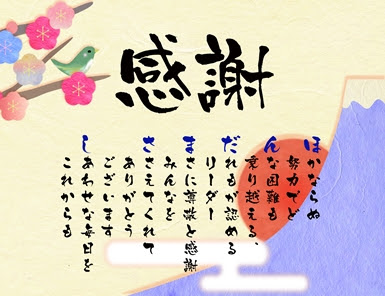 感謝
ほかならぬ
努力でど
んな困難も
乗り越える、
だれもが認める
リーダー
まさに尊敬と感謝
みんなを
ささえてくれて
ありがとう
ございます
しあわせな毎日を
これからも